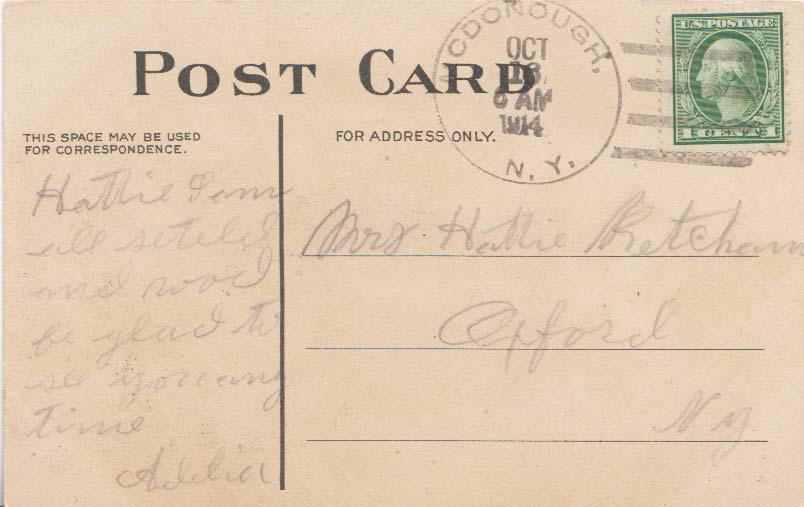 POST CARD
MCDONOUGH,
OCT
13
6 AM
1914
N. Y.
U.S. POSTAGE
1 CENT 1
THIS SPACE MAY BE USED
FOR CORRESPONDENCE.
FOR ADDRESS ONLY.
Hattie I am
all seteld
and wod
be glad to
see you any
time
Addia
Mrs Hattie Ketcham
Oxford
Ny